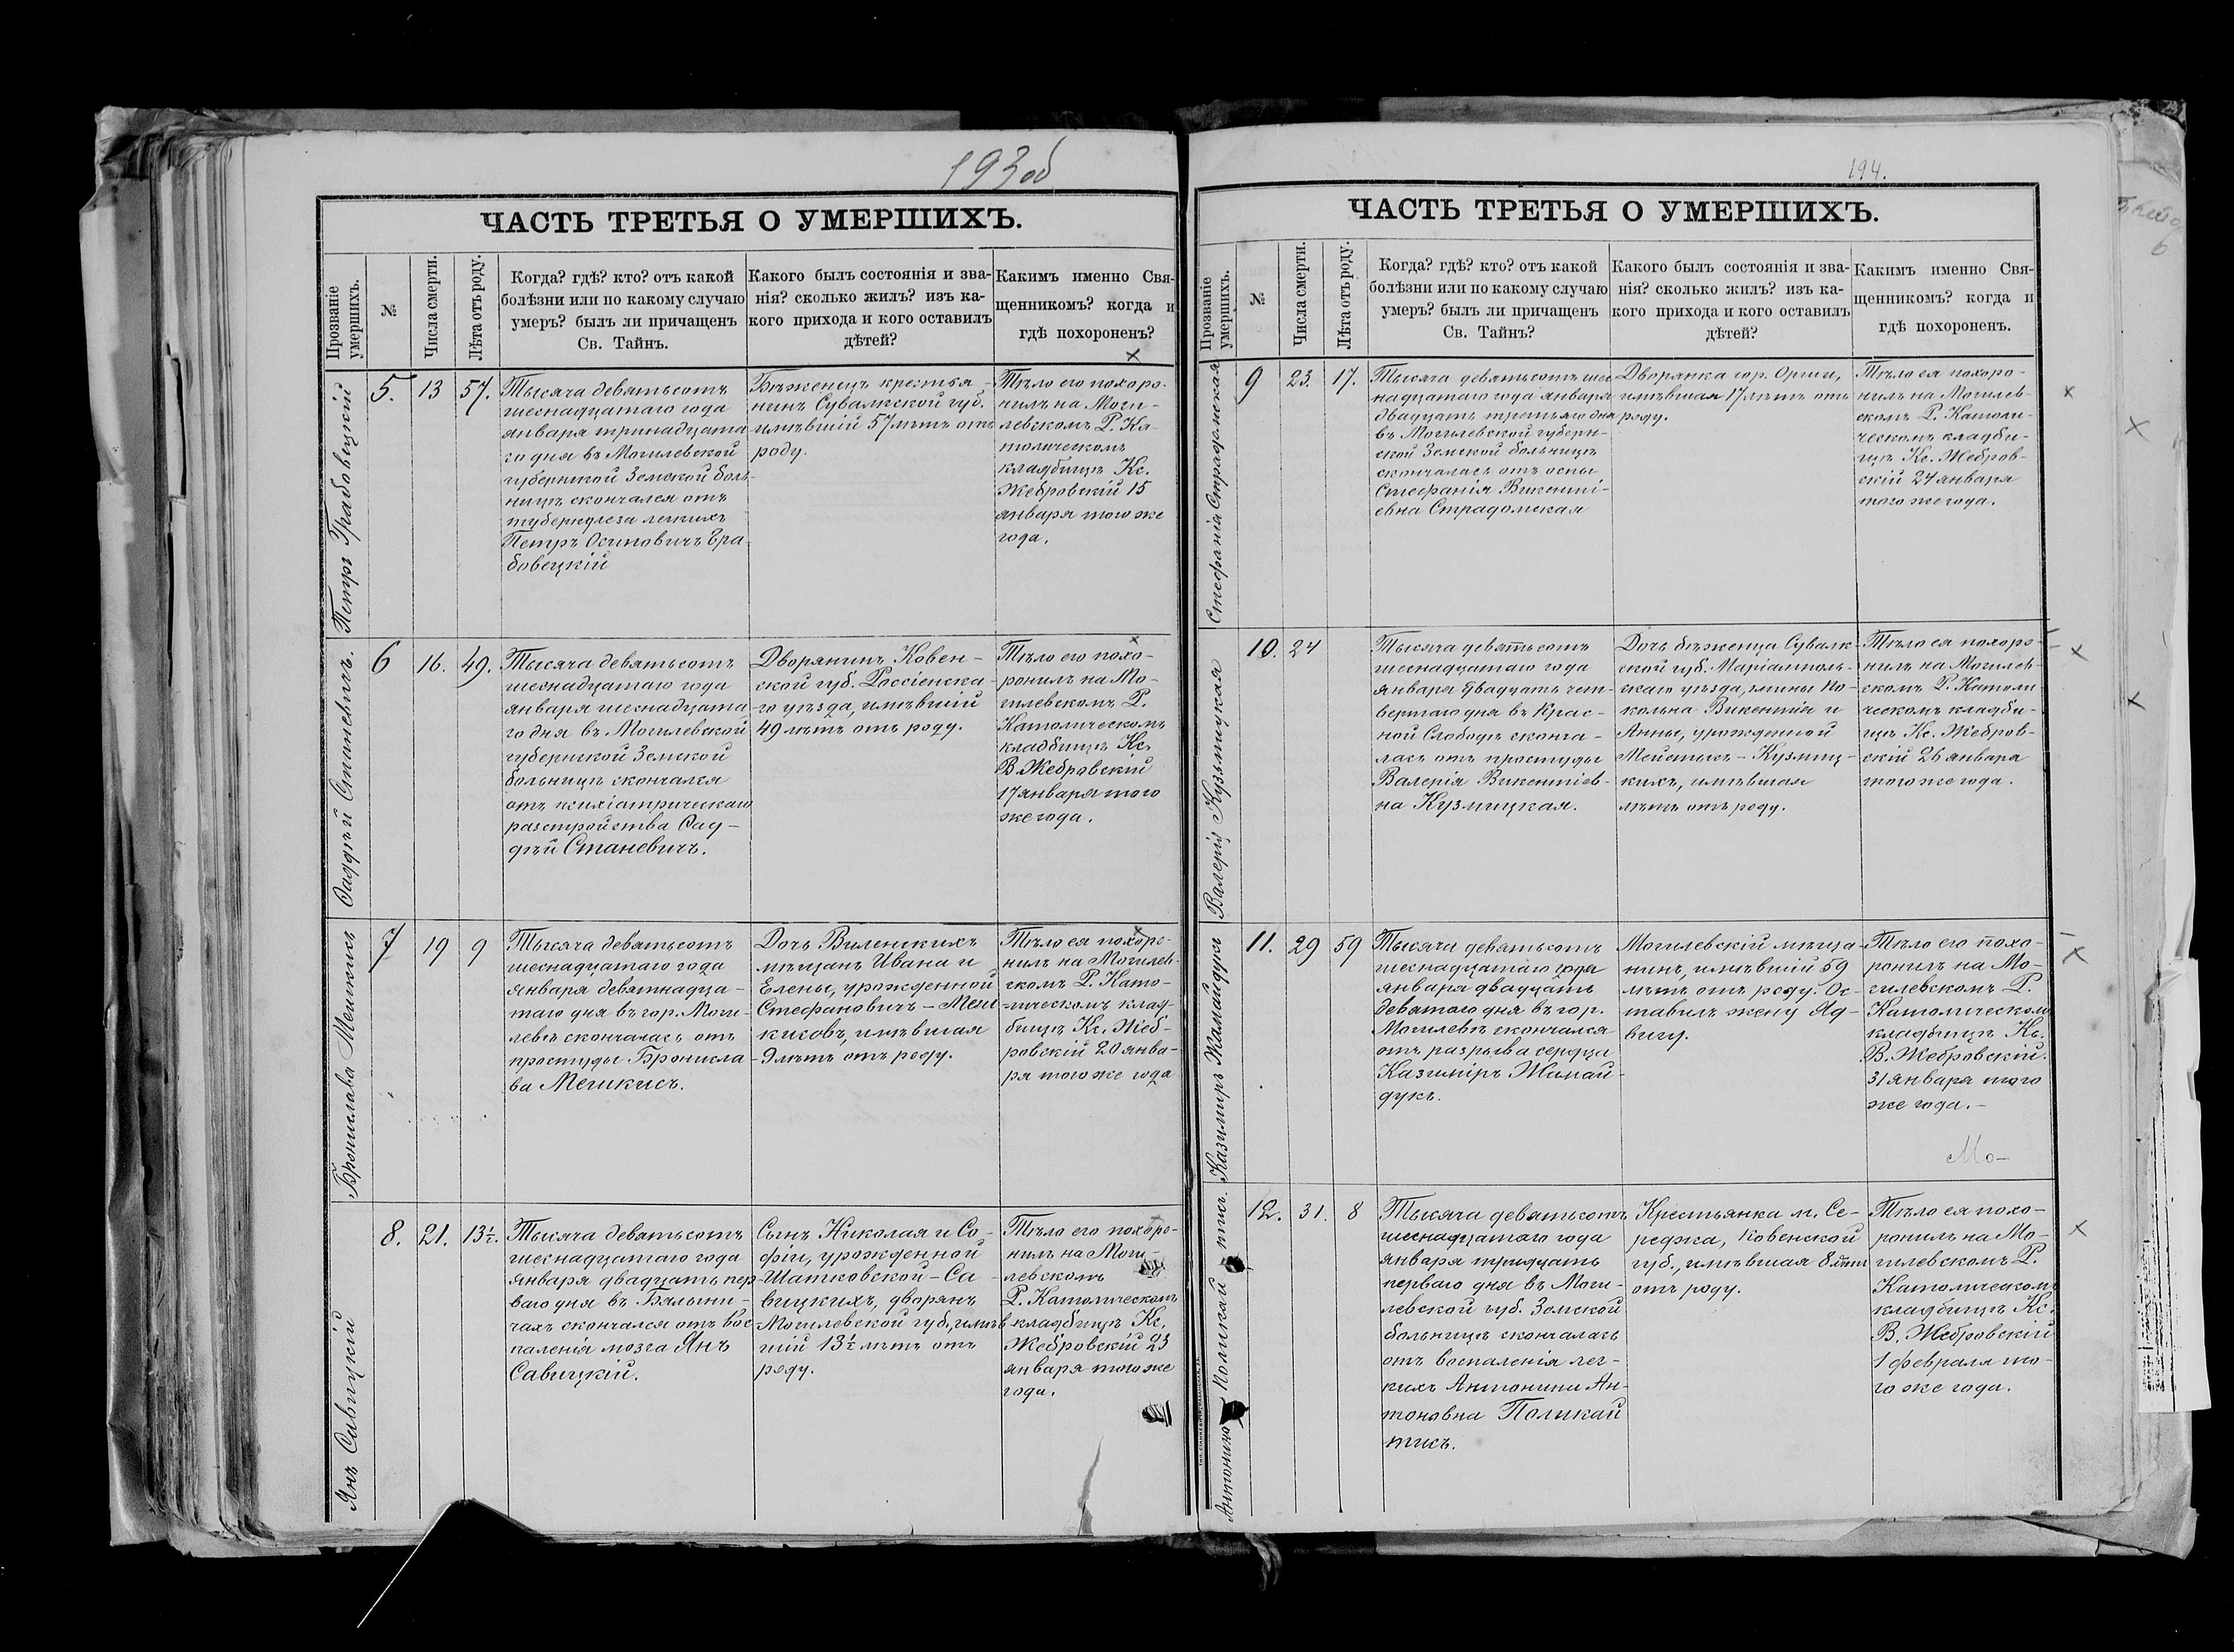 193 об
ЧАСТЬ ТРЕТЬЯ О УМЕРШИХЪ.
Прозваніе
умершихъ.
№
Числа смерти.
Лѣта отъ роду.
Когда? гдѣ? кто? отъ какой
болѣзни или по какому случаю
умеръ? былъ ли причащенъ
Св. Тайнъ.
Какого былъ состоянія и зва-
нія? сколько жилъ? изъ ка-
кого прихода и кого оставилъ
дѣтей?
Какимъ именно Свя-
щенникомъ? когда и
гдѣ похороненъ?
Петръ Грабовецкій
5.
13
57.
Тысяча девятьсотъ
шеснадцатаго года
января тринадцата
го дня въ Могилевской
губернкой Земской боль-
ницѣ скончался отъ
туберкулеза легкихъ
Петръ Осиповичъ Гра
бовецкій
Бѣженецъ крестья-
нинъ Сувалкской губ.
имѣвшій 57 лѣтъ отъ
роду.
Тѣло его похоро-
нилъ на Моги-
левскомъ Р. Ка-
толическомъ
кладбищѣ Кс.
Жебровскій 15
января того же
года.
Фаддѣй Станевичъ.
6
16.
49.
Тысяча девятьсотъ
шеснадцатаго года
января шеснадцата
го дня въ Могилевской
губернкой Земской
больницѣ скончался
отъ психіатрическаго
разстройства Фад-
дѣй Станевичъ.
Дворянинъ Ковен-
ской губ. Россіенска-
го уѣзда, имѣвшій
49 лѣтъ отъ роду.
Тѣло его похо-
ронилъ на Мо-
гилевскомъ Р.
Католическомъ
кладбищѣ Кс.
В. Жебровскій
17 января того
же года.
Бронислава Мешкисъ
7
19
9
Тысяча девятьсотъ
шеснадцатаго года
января девятнадца-
таго дня въ гор. Моги-
левѣ скончалась отъ
простуды Бронисла
ва Мешкисъ.
Дочь Виленскихъ
мѣщанъ Ивана и
Елены, урожденной
Стефановичъ - Меш
кисовъ, имѣвшая
9 лѣтъ отъ роду.
Тѣло ея похоро-
нилъ на Могилев-
скомъ Р. Като-
лическомъ клад-
бищѣ Кс. Жеб-
ровскій 20 янва-
ря того же года
Янъ Савицкій
8.
21.
13½.
Тысяча девятьсотъ
шеснадцатаго года
января двадцать пер-
ваго дня въ Бялыни-
чахъ скончался отъ вос
паленія мозга Янъ
Савицкій.
Сынъ Николая и Со-
фіи, урожденной
Шатковской - Са-
вицкихъ, дворянъ
Могилевской губ., имѣв
шій 13½ лѣтъ отъ
роду.
Тѣло его похоро-
нилъ на Моги-
левскомъ
Р. Католическомъ
кладбищѣ Кс.
Жебровскій 23
января того же
года.
194.
ЧАСТЬ ТРЕТЬЯ О УМЕРШИХЪ.
Прозваніе
умершихъ.
№
Числа смерти.
Лѣта отъ роду.
Когда? гдѣ? кто? отъ какой
болѣзни или по какому случаю
умеръ? былъ ли причащенъ
Св. Тайнъ?
Какого былъ состоянія и зва-
нія? сколько жилъ? изъ ка-
кого прихода и кого оставилъ
дѣтей?
Какимъ именно Свя-
щенникомъ? когда и
гдѣ похороненъ.
Стефанія Страдомская
9
23.
17.
Тысяча девятьсотъ шес
надцатаго года января
двадцать третьяго дня
въ Могилевской губерн-
ской Земской больницѣ
скончалась отъ оспы
Стефанія Викенті-
евна Страдомская
Дворянка гор. Орши,
имѣвшая 17 лѣтъ отъ
роду.
Тѣло ея похоро-
нилъ на Могилев-
скомъ Р. Католи-
ческомъ кладби-
щѣ Кс. Жебров-
скій 24 января
того же года.
Валерія Кузьмицкая
10.
24
Тысяча девятьсотъ
шеснадцатаго года
января двадцать чет-
вертаго дня въ Крас-
ной Слободѣ сконча-
лась отъ простуды
Валерія Викентіев-
на Кузмицкая.
Дочь бѣженца Сувалк-
ской губ. Маріамполь-
скаго уѣзда, гмины По-
кольна Викентія и
Анны, урожденной
Мейстысъ - Кузмиц-
кихъ, имѣвшая
лѣтъ отъ роду.
Тѣло ея похоро-
нилъ на Могилев-
скомъ Р. Католи
ческомъ кладби-
щѣ Кс. Жебров-
скій 26 января
того же года.
Казимиръ Жамайдукъ
11.
29
59
Тысячи девятьсотъ
шеснадцатаго года
января двадцать
девятого дня въ гор.
Могилевѣ скончался
отъ разрыва сердца
Казиміръ Жамай-
дукъ.
Могилевскій мѣща-
нинъ, имѣвшій 59
лѣтъ отъ роду. Ос-
тавилъ жену Яд-
вигу.
Тѣло его похо-
ронилъ на Мо-
гилевскомъ Р.
Католическомъ
кладбищѣ Кс.
В. Жебровскій.
31 января того
же года. -
Мо-
Антонина Поликай тисъ.
12.
31.
8
Тысяча девятьсотъ
шеснадцатаго года
января тридцать
перваго дня въ Моги-
левской губ. Земской
больницѣ скончалась
отъ воспаленія лег-
кихъ Антонины Ан-
тоновна Поликай
тисъ.
Крестьянка м. Се-
реджа, Ковенской
губ., имѣвшая 8 лѣтъ
отъ роду.
Тѣло ея похо-
ронилъ на Мо-
гилевскомъ Р.
Католическомъ
кладбищѣ Кс.
В. Жебровскій
1 февраля то-
го же года.